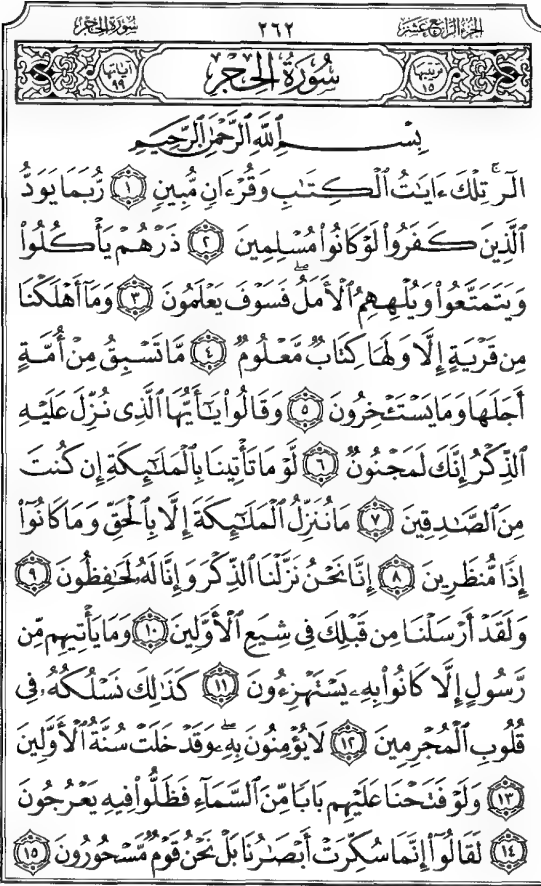 الجزء الرابع عشر ٢٦٢ سورة الحجر
ترتيبها ١٥ سُورَةُ الحِجْرِ آياتها ٩٩
بِسْمِ اللَّهِ الرَّحْمَٰنِ الرَّحِيمِ
الٓرۚ تِلْكَ ءَايَٰتُ ٱلْكِتَٰبِ وَقُرْءَانٍ مُّبِينٍ ١ رُّبَمَا يَوَدُّ
ٱلَّذِينَ كَفَرُوا۟ لَوْ كَانُوا۟ مُسْلِمِينَ ٢ ذَرْهُمْ يَأْكُلُوا۟
وَيَتَمَتَّعُوا۟ وَيُلْهِهِمُ ٱلْأَمَلُۖ فَسَوْفَ يَعْلَمُونَ ٣ وَمَآ أَهْلَكْنَا
مِن قَرْيَةٍ إِلَّا وَلَهَا كِتَابٌ مَّعْلُومٌ ٤ مَّا تَسْبِقُ مِنْ أُمَّةٍ
أَجَلَهَا وَمَا يَسْتَـْٔخِرُونَ ٥ وَقَالُوا۟ يَٰٓأَيُّهَا ٱلَّذِى نُزِّلَ عَلَيْهِ
ٱلذِّكْرُ إِنَّكَ لَمَجْنُونٌ ٦ لَّوْ مَا تَأْتِينَا بِٱلْمَلَٰٓئِكَةِ إِن كُنتَ
مِنَ ٱلصَّٰدِقِينَ ٧ مَا نُنَزِّلُ ٱلْمَلَٰٓئِكَةَ إِلَّا بِٱلْحَقِّ وَمَا كَانُوٓا۟
إِذًا مُّنظَرِينَ ٨ إِنَّا نَحْنُ نَزَّلْنَا ٱلذِّكْرَ وَإِنَّا لَهُۥ لَحَٰفِظُونَ ٩
وَلَقَدْ أَرْسَلْنَا مِن قَبْلِكَ فِى شِيَعِ ٱلْأَوَّلِينَ ١٠ وَمَا يَأْتِيهِم مِّن
رَّسُولٍ إِلَّا كَانُوا۟ بِهِۦ يَسْتَهْزِءُونَ ١١ كَذَٰلِكَ نَسْلُكُهُۥ فِى
قُلُوبِ ٱلْمُجْرِمِينَ ١٢ لَا يُؤْمِنُونَ بِهِۦۖ وَقَدْ خَلَتْ سُنَّةُ ٱلْأَوَّلِينَ
١٣ وَلَوْ فَتَحْنَا عَلَيْهِم بَابًا مِّنَ ٱلسَّمَآءِ فَظَلُّوا۟ فِيهِ يَعْرُجُونَ
١٤ لَقَالُوٓا۟ إِنَّمَا سُكِّرَتْ أَبْصَٰرُنَا بَلْ نَحْنُ قَوْمٌ مَّسْحُورُونَ ١٥